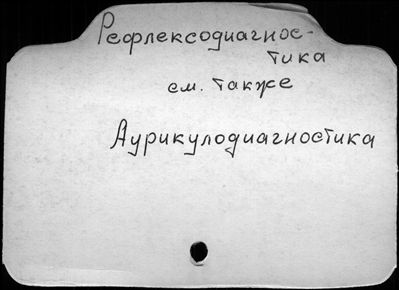 Рефлексодиагнос-
тика
см. также
Аурикулодиагностика